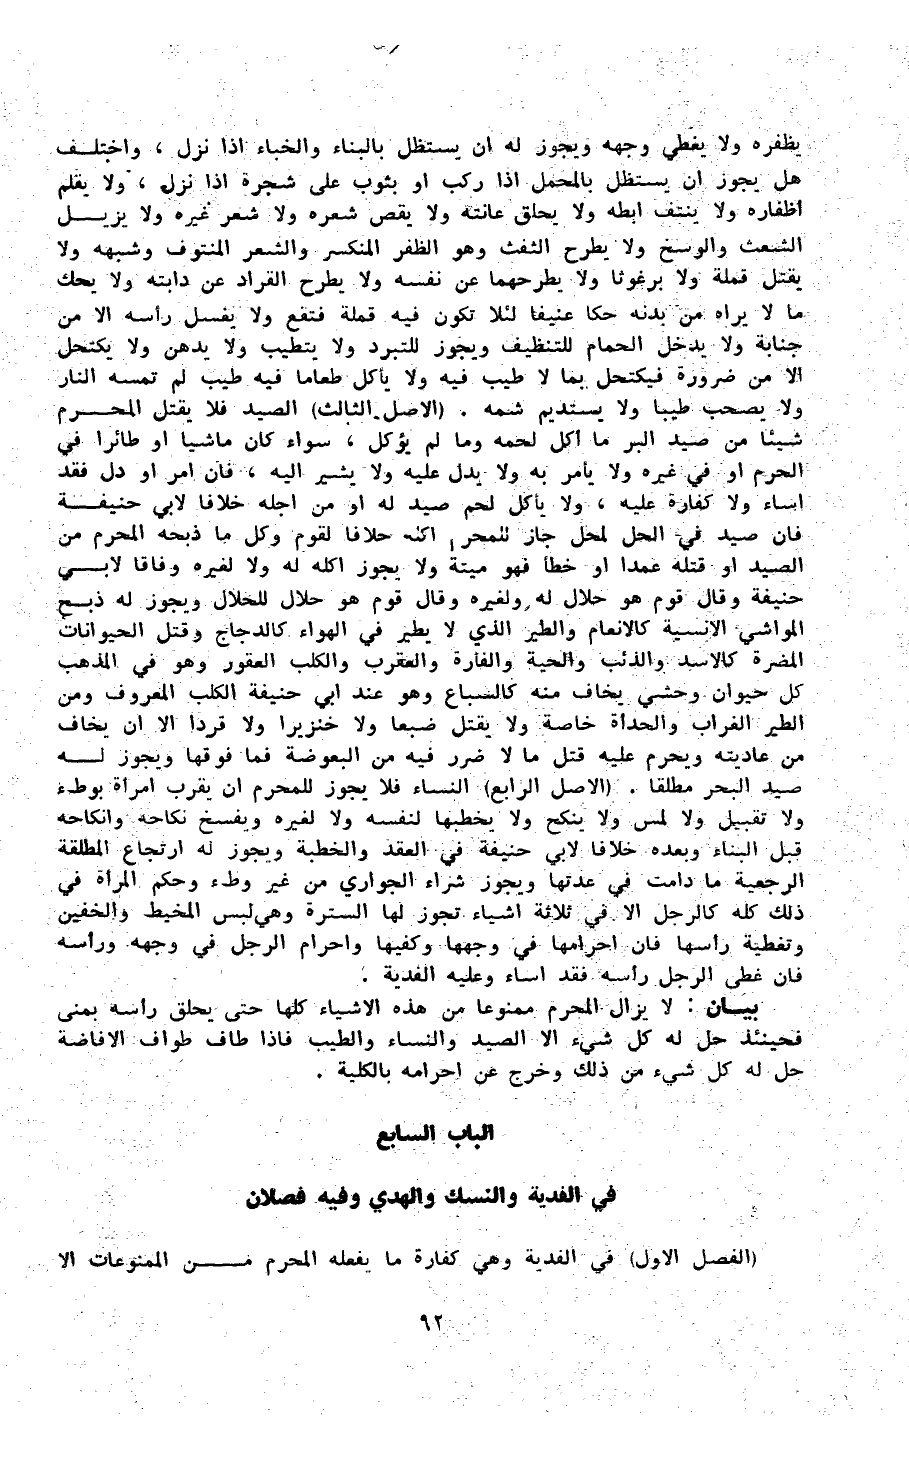 يظفره ولا يغطي وجهه ويجوز له ان يستظل بالبناء والخباء اذا نزل ، واختلف
هل يجوز ان يستظل بالمحمل اذا ركب او بثوب على شجرة اذا نزل ، ولا يقلم
أظفاره ولا ينتف ابطه ولا يحلق عانته ولا يقص شعره ولا شعر غيره ولا يزيـــل
الشعث والوسخ ولا يطرح التفث وهو الظفر المنكسر والشعر المنتوف وشبهه ولا
يقتل قملة ولا برغوثا ولا يطرحهما عن نفسه ولا يطرح القراد عن دابته ولا يحك
ما لا يراه من بدنه حكا عنيفا لئلا تكون فيه قملة فتقع ولا يغسل رأسه الا من
جنابة ولا يدخل الحمام للتنظيف ويجوز للتبرد ولا يتطيب ولا يدهن ولا يكتحل
الا من ضرورة فيكتحل بما لا طيب فيه ولا يأكل طعاما فيه طيب لم تمسه النار
ولا يصحب طيبا ولا يستديم شمه . (الاصل الثالث) الصيد فلا يقتل المحـــرم
شيئا من صيد البر ما أكل لحمه وما لم يؤكل ، سواء كان ماشيا او طائرا في
الحرم او في غيره ولا يأمر به ولا يدل عليه ولا يشير اليه ، فان امر او دل فقد
اساء ولا كفارة عليه ، ولا يأكل لحم صيد له او من اجله خلافا لابي حنيفـــة
فان صيد في الحل لمحل جاز للمحرم اكله خلافا لقوم وكل ما ذبحه المحرم من
الصيد او قتله عمدا او خطأ فهو ميتة ولا يجوز اكله له ولا لغيره وفاقا لابـــي
حنيفة وقال قوم هو حلال له ولغيره وقال قوم هو حلال للحلال ويجوز له ذبــح
المواشي الانسية كالانعام والطير الذي لا يطير في الهواء كالدجاج وقتل الحيوانات
المضرة كالاسد والذئب والحية والفارة والعقرب والكلب العقور وهو في المذهب
كل حيوان وحشي يخاف منه كالسباع وهو عند ابي حنيفة الكلب المعروف ومن
الطير الغراب والحدأة خاصة ولا يقتل ضبعا ولا خنزيرا ولا قردا الا ان يخاف
من عاديته ويحرم عليه قتل ما لا ضرر فيه من البعوضة فما فوقها ويجوز لـــه
صيد البحر مطلقا . (الاصل الرابع) النساء فلا يجوز للمحرم ان يقرب امرأة بوطء
ولا تقبيل ولا لمس ولا ينكح ولا يخطبها لنفسه ولا لغيره ويفسخ نكاحه وانكاحه
قبل البناء وبعده خلافا لابي حنيفة في العقد والخطبة ويجوز له ارتجاع المطلقة
الرجعية ما دامت في عدتها ويجوز شراء الجواري من غير وطء وحكم المرأة في
ذلك كله كالرجل الا في ثلاثة اشياء تجوز لها السترة وهي لبس المخيط والخفين
وتغطية رأسها فان احرامها في وجهها وكفيها واحرام الرجل في وجهه ورأسه
فان غطى الرجل رأسه فقد اساء وعليه الفدية .
بيـــان : لا يزال المحرم ممنوعا من هذه الاشياء كلها حتى يحلق رأسه بمنى
فحينئذ حل له كل شيء الا الصيد والنساء والطيب فاذا طاف طواف الافاضة
حل له كل شيء من ذلك وخرج عن احرامه بالكلية .
الباب السابع
في الفدية والنسك والهدي وفيه فصلان
(الفصل الاول) في الفدية وهي كفارة ما يفعله المحرم مـــــن الممنوعات الا
٩٢